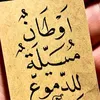 أوطانٌ
مُسيّلةٌ
للدموعِ